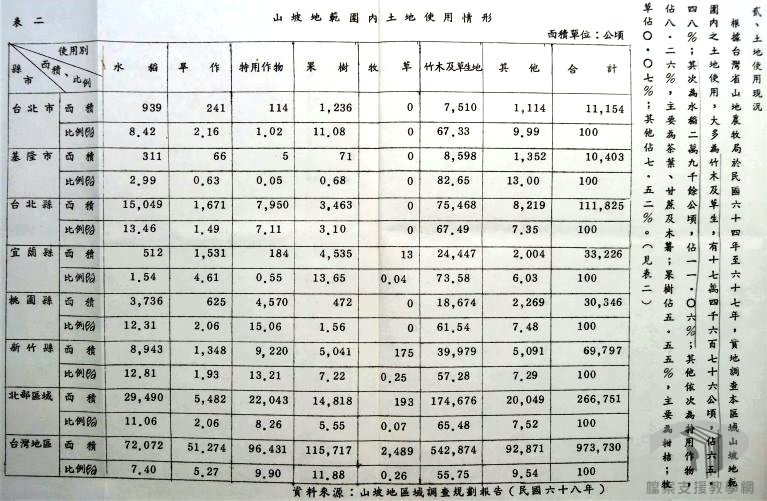 貳、土地使用現況
根據台灣省山地農牧局於民國六十四年至六十七年，實地調查本區域山坡地範
圍內之土地使用，大多為竹木及草生，有十七萬四千六百七十六公頃，佔六五．
四八％；其次為水稻二萬九千餘公頃，佔一一．〇六％；其他依次為特用作物，
佔八．二六％，主要為茶葉、甘蔗及木薯；果樹佔五．五五％，主要為柑桔；牧
草佔〇．〇七％；其他佔七．五二％。（見表二）
表二 山坡地範圍內土地使用情形
面積單位：公頃
縣市 面積、比例 使用別 水稻 旱作 特用作物 果樹 牧草 竹木及草生地 其他 合計
台北市 面積 939 241 114 1,236 0 7,510 1,114 11,154
比例% 8.42 2.16 1.02 11.08 0 67.33 9.99 100
基隆市 面積 311 66 5 71 0 8,598 1,352 10,403
比例% 2.99 0.63 0.05 0.68 0 82.65 13.00 100
台北縣 面積 15,049 1,671 7,950 3,463 0 75,468 8,219 111,825
比例% 13.46 1.49 7.11 3.10 0 67.49 7.35 100
宜蘭縣 面積 512 1,531 184 4,535 13 24,447 2.004 33,226
比例% 1.54 4.61 0.55 13.65 0.04 73.58 6.03 100
桃園縣 面積 3,736 625 4,570 472 0 18,674 2,269 30,346
比例% 12.31 2.06 15.06 1.56 0 61.54 7.48 100
新竹縣 面積 8,943 1,348 9,220 5,041 175 39,979 5,091 69,797
比例% 12.81 1.93 13.21 7.22 0.25 57.28 7.29 100
北部區域 面積 29,490 5,482 22,043 14,818 193 174,676 20,049 266,751
比例% 11.06 2.06 8.26 5.55 0.07 65.48 7.52 100
台灣地區 面積 72.072 51.274 96.431 115,717 2,489 542,874 92,871 973,730
比例% 7.40 5.27 9.90 11.88 0.26 55.75 9.54 100
資料來源：山坡地區域調查規劃報告（民國六十八年）
檔案支援教學網